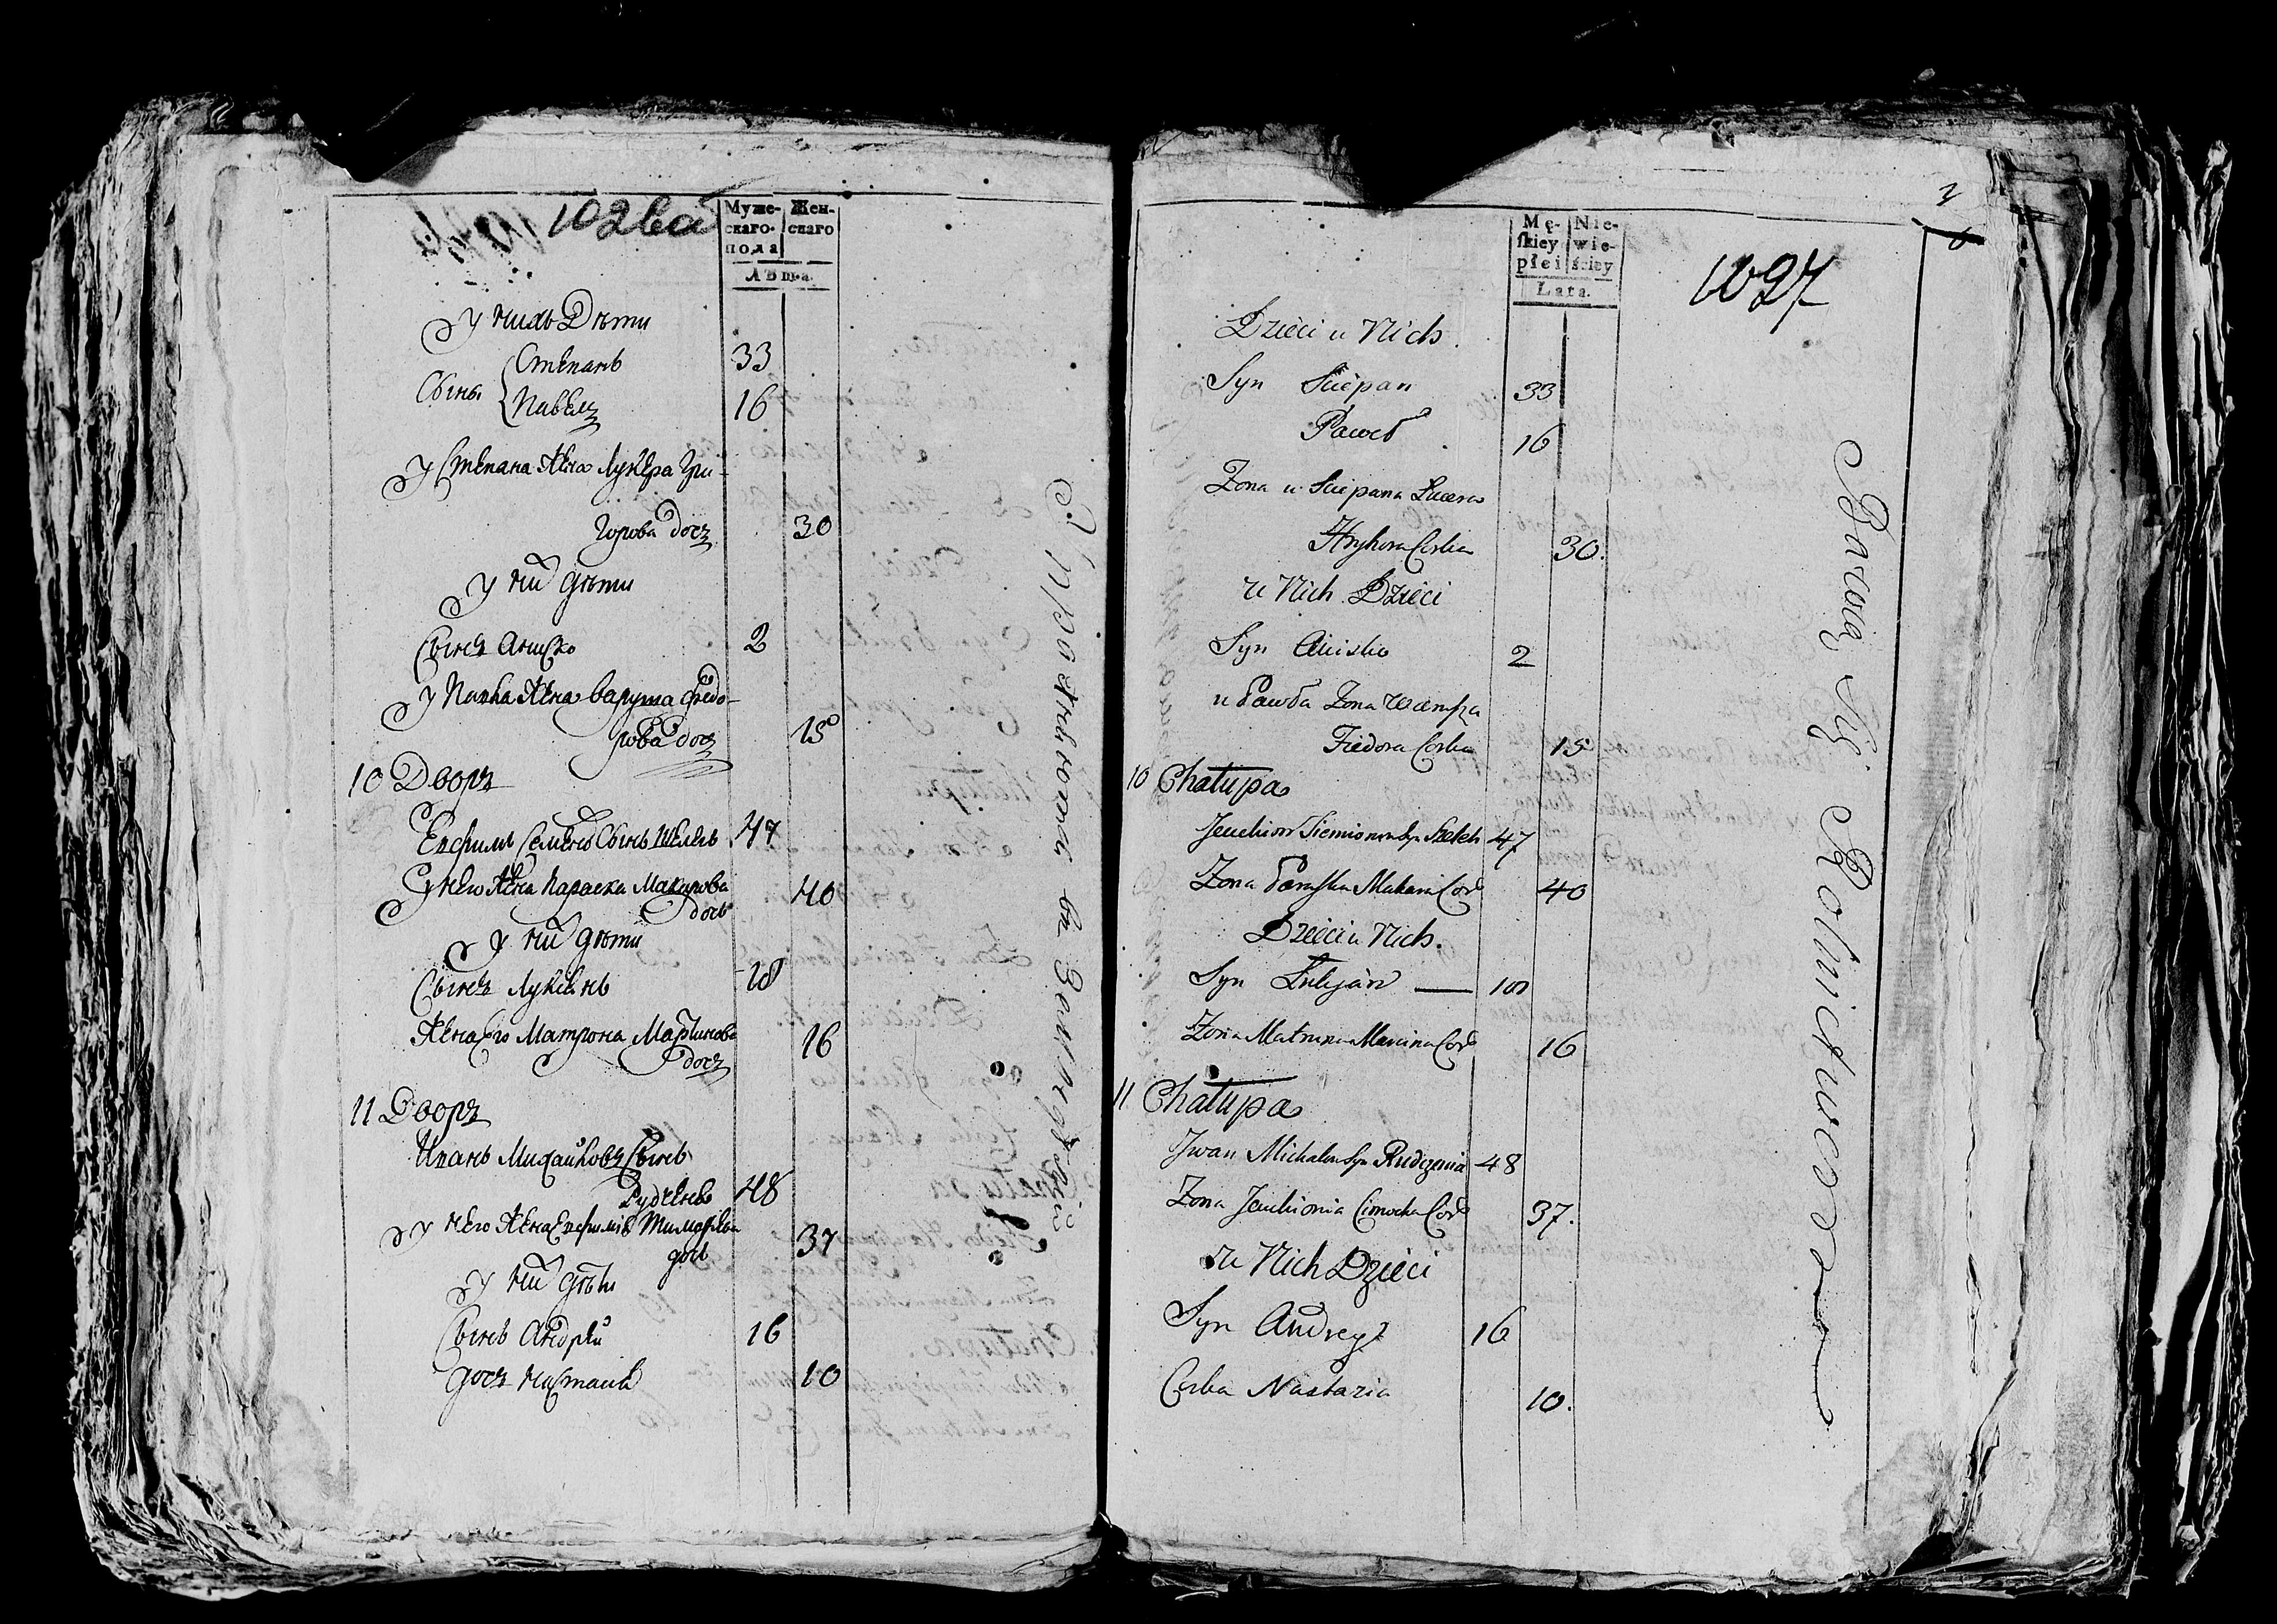 102ва
Муже-
скаго-
пола
Жен-
скаго
Лѣта.
У нихъ Дѣти
Сыны
Степанъ 33
Павелъ 16
У Степана Жена Лукера Гри-
горова дочъ 30
У ни дѣти
Сынъ Аниско 2
У Павла Жена Варуша Федо-
рова дочъ 15
10 Дворъ
Евфимъ Семеновъ Сынъ Шелегъ 47
У него Жена Параска Макарова
дочь 40
У ни дѣти
Сынъ Лукянъ 18
Жена Его Матрона Мартинова
дочъ 16
11 Дворъ
Иванъ Михайловъ Сынъ
Рудченя 48
У него Жена Евфимія Тимофеева
дочь 37
У ни дѣти
Сынъ Андрѣй 16
дочъ Настасія 10
Упражняются въ Земледѣліи
Mę-
skiey
płci
Nie-
wie-
ściey
Lata.
1027
Dzieci u Nich.
Syn Sciepan 33
Paweł 16
Zona u Sciepana Lucera
Hryhora Corka 30.
u Nich Dzieci
Syn Anisko 2
u Pawła Zona Warusza
Fiedora Corka 15
10 Chałupa
Jeuchim Siemionow Syn Szeleh 47
Zona Paraska Makara Cor 40
Dzieci u Nich.
Syn Łukjan 18
Zona Matruna Marcina Cor 16
11 Chałupa
Jwan Michałow Syn Rudczenia 48
Zona Jeuchimia Cimocha Cor 37.
u Nich Dzieci
Syn Andrey 16
Corka Nastazia 10.
Bawią Się Rolnictwem